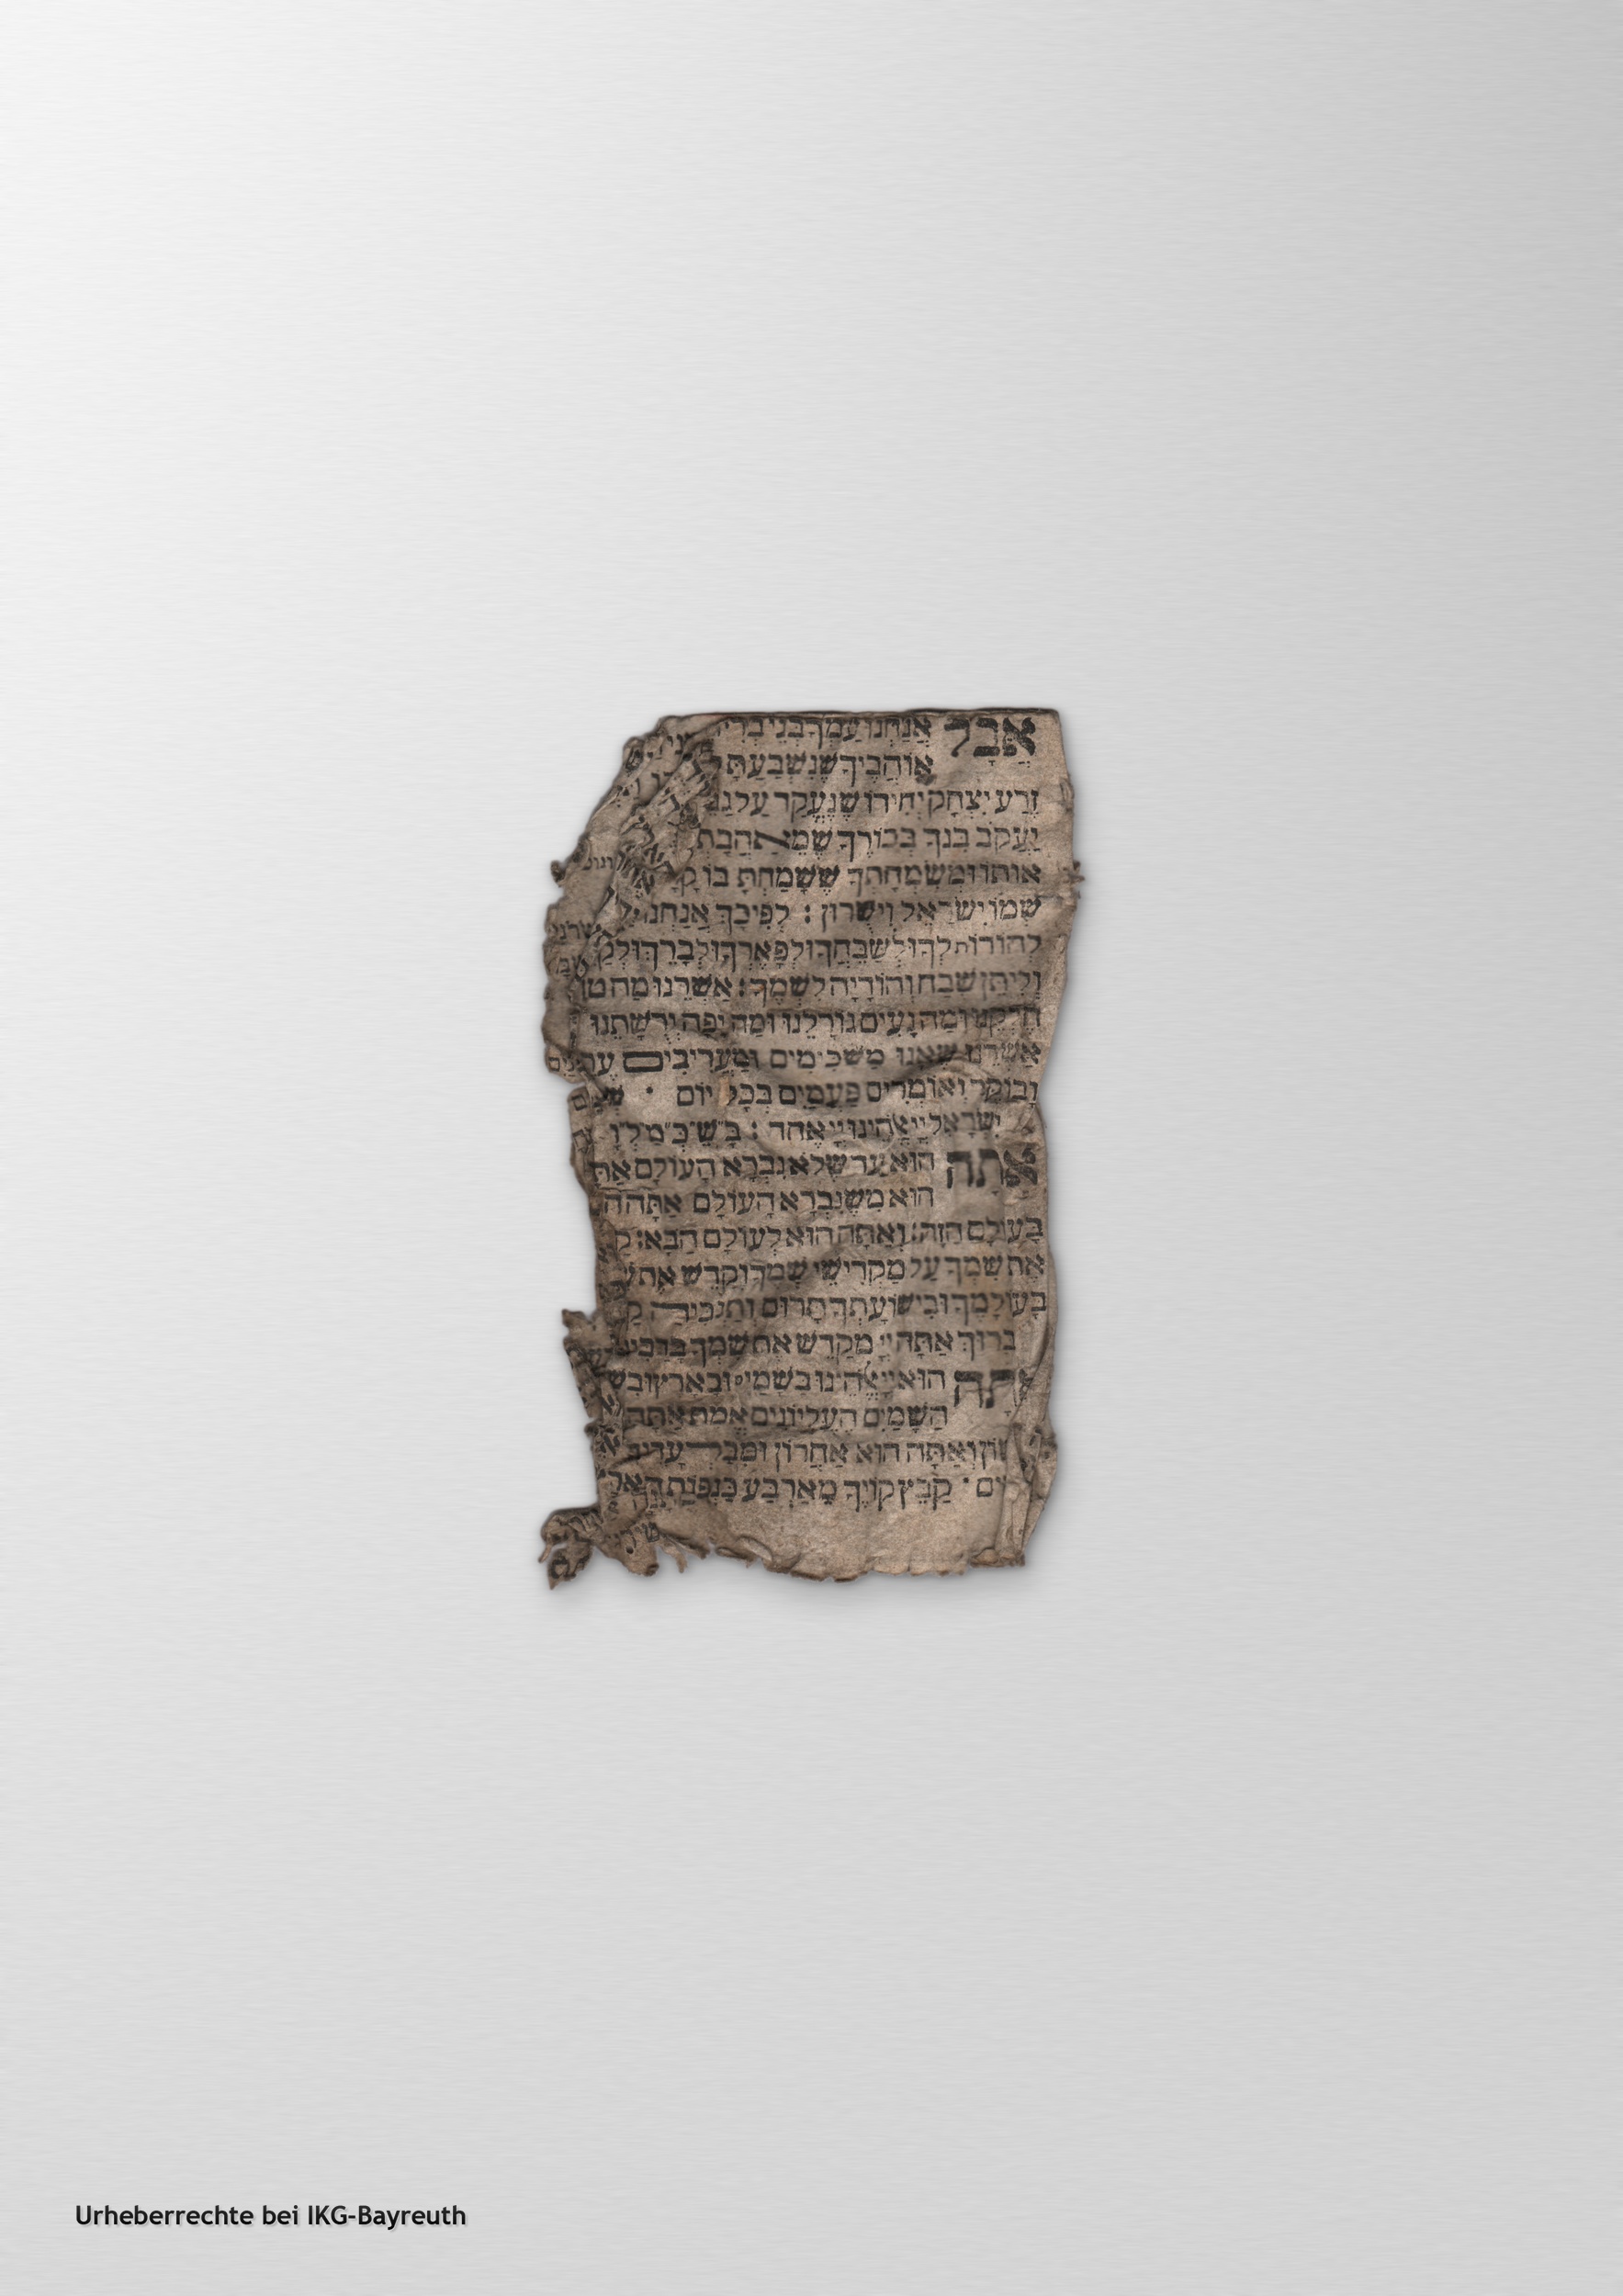 אֲבָל אֲנַחְנוּ עַמְּךָ בְּנֵי בְרִי
אוֹהֲבֶיךָ שֶׁנִּשְׁבַּעְתָּ
זֶרַע יִצְחָק יְחִידוֹ שֶׁנֶּעֱקַד עַל גַּבֵּ
יַעֲקֹב בִּנְךָ בְּכוֹרֶךָ שֶׁמֵּאַהֲבָת
אותו וּמִשִּׂמְחָתְךָ שֶׁשָּׂמַחְתָּ בּוֹ קָ
שְׁמוֹ יִשְׂרָאֵל וִישֻׁרוּן : לְפִיכָךְ אֲנַחְנוּ
לְהוֹדוֹת לְךָ וּלְשַׁבֵּחֲךָ וּלְפָאֶרְךָ וּלְבָרֵךְ וּלְקַ
וְלִיתֵּן שֶׁבַח וְהוֹדָיָה לִשְׁמֶךָ : אַשְׁרֵנוּ מַה טּוֹ
חֶלְקֵנוּ וּמַה נָּעִים גּוֹרָלֵנוּ וּמַה יָּפָה יְרֻשָּׁתֵנוּ
אַשְׁרֵנוּ שֶׁאָנוּ מַשְׁכִּימִים וּמַעֲרִיבִים
וָבוֹקֶר וְאוֹמְרִים פַּעֲמַיִם בְּכָל יוֹם ·
יִשְׂרָאֵל יְיָ אֱלֹהֵינוּ יְיָ אֶחָד : בָּ״שֵׁ״כְּ״מַ״לְ״וָ
אַתָּה הוּא עַד שֶׁלֹּא נִבְרָא הָעוֹלָם אַתָּ
הוּא מִשֶּׁנִּבְרָא הָעוֹלָם אַתָּה ה
בָּעוֹלָם הַזֶּה: וְאַתָּה הוּא לָעוֹלָם הַבָּא: קַ
אֶת שִׁמְךָ עַל מַקְדִּישֵׁי שְׁמֶךָ וְקַדֵּשׁ אֶת שִׁ
בְּעוֹלָמֶךָ וּבִישׁוּעָתְךָ תָּרוּם וְתַגְבִּיהַּ קַ
בָּרוּךְ אַתָּה יְיָ מְקַדֵּשׁ אֶת שִׁמְךָ
אַתָּה הוּא יְיָ אֱלֹהֵינוּ בַּשָּׁמַיִם וּבָאָרֶץ וּבִשְׁ
הַשָּׁמַיִם הָעֶלְיוֹנִים אֱמֶת אַתָּה
שׁוֹן וְאַתָּה הוּא אַחֲרוֹן
ים · קַבֵּץ קוֶֹיךָ מֵאַרְבַּע כַּנְפוֹת הָאָרֶץ
Urheberrechte bei IKG-Bayreuth